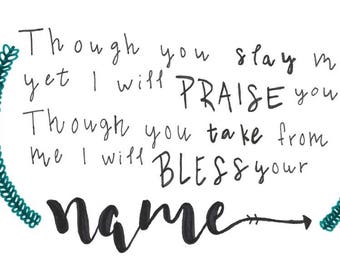 Though you slay m
yet I will PRAISE you
Though you take from
me I will BLESS your
name